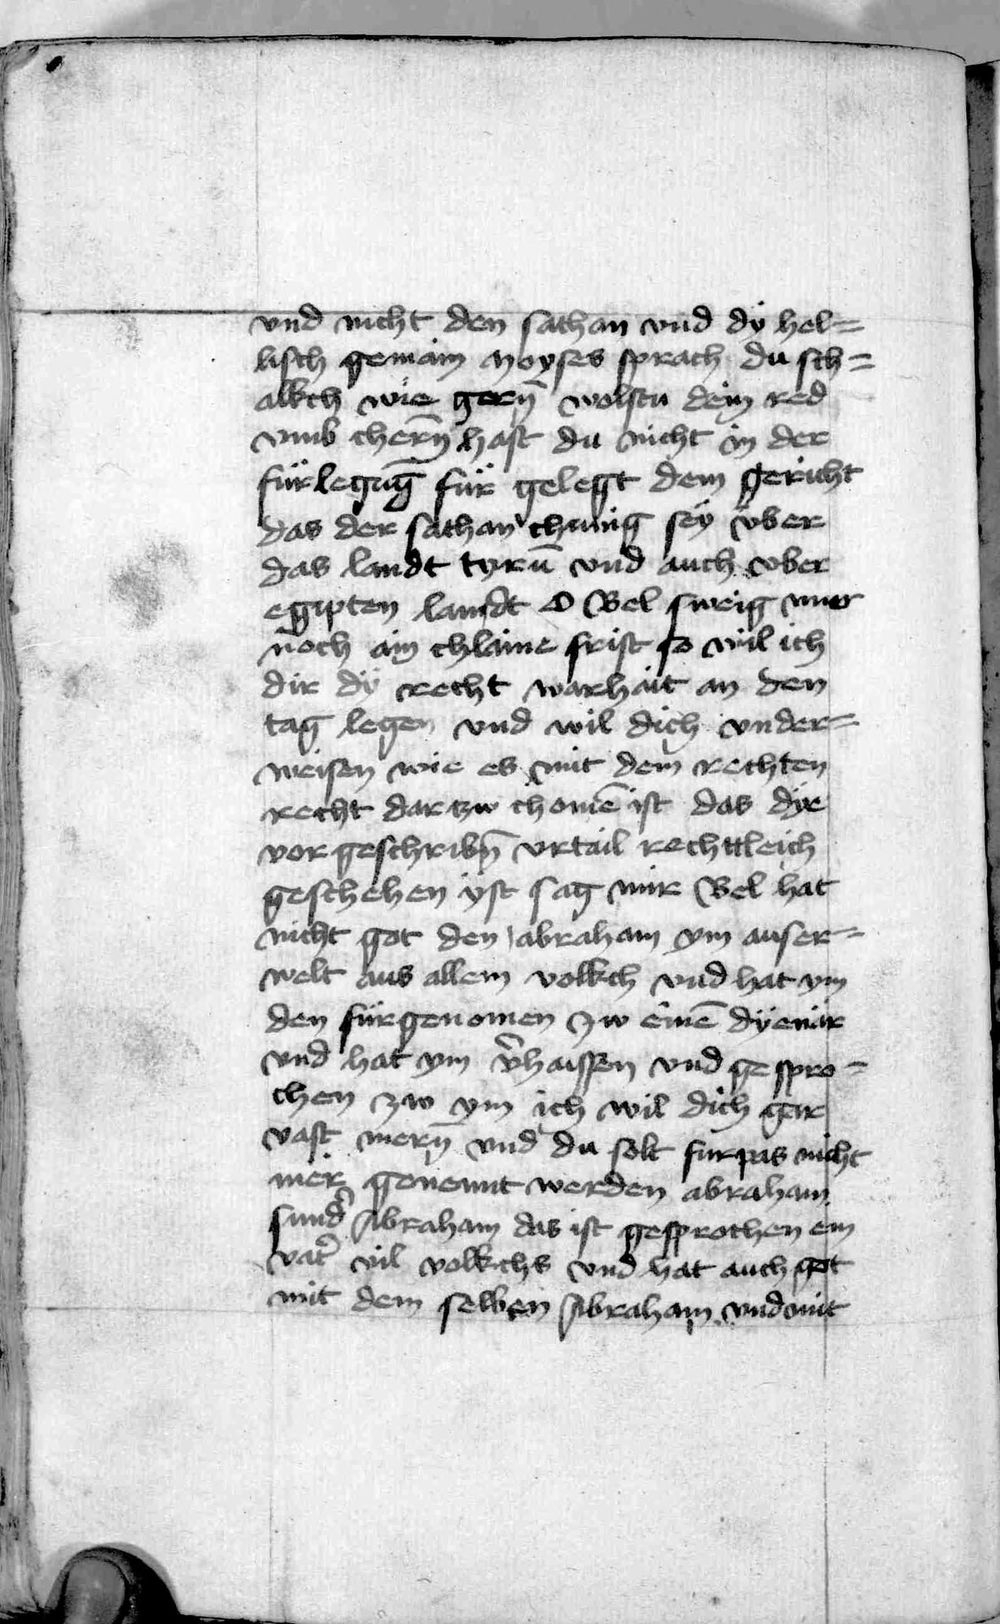 vnd nicht den sathan vnd dÿ hel=
lisch gemain Moyses sprach du sch=
alkch wie gerñ wolstu dein red
vmb cherñ hast du nicht in der
fürlegūg für gelegt dem gericht
das der sathan chunig sey vber
das landt tyrū vnd auch vber
egipten landt O Bel sweig nuer
noch ain chlaine frist so wil ich
dir dÿ recht warhait an den
tag legen vnd wil dich vnder=
weisen wie es mit dem rechten
recht dar zw chomē ist das dÿe
vor geschribñ vrtail rechttleich
geschehen ÿst sag mir Bel hat
nicht got den abraham ym auser=
welt aus allem volkch vnd hat ym
den fürgenomen zw einē dÿenär
vnd hat ym v̉haissen vnd gespro=
chen zw ym ich wil dich gar
vast merñ vnd du solt furpas nicht
mer genennt werden abraham
sund̉ Abraham das ist gesprochen ein
vat̉ vil volkchs vnd hat auch got
mit dem selben Abraham vnd mit